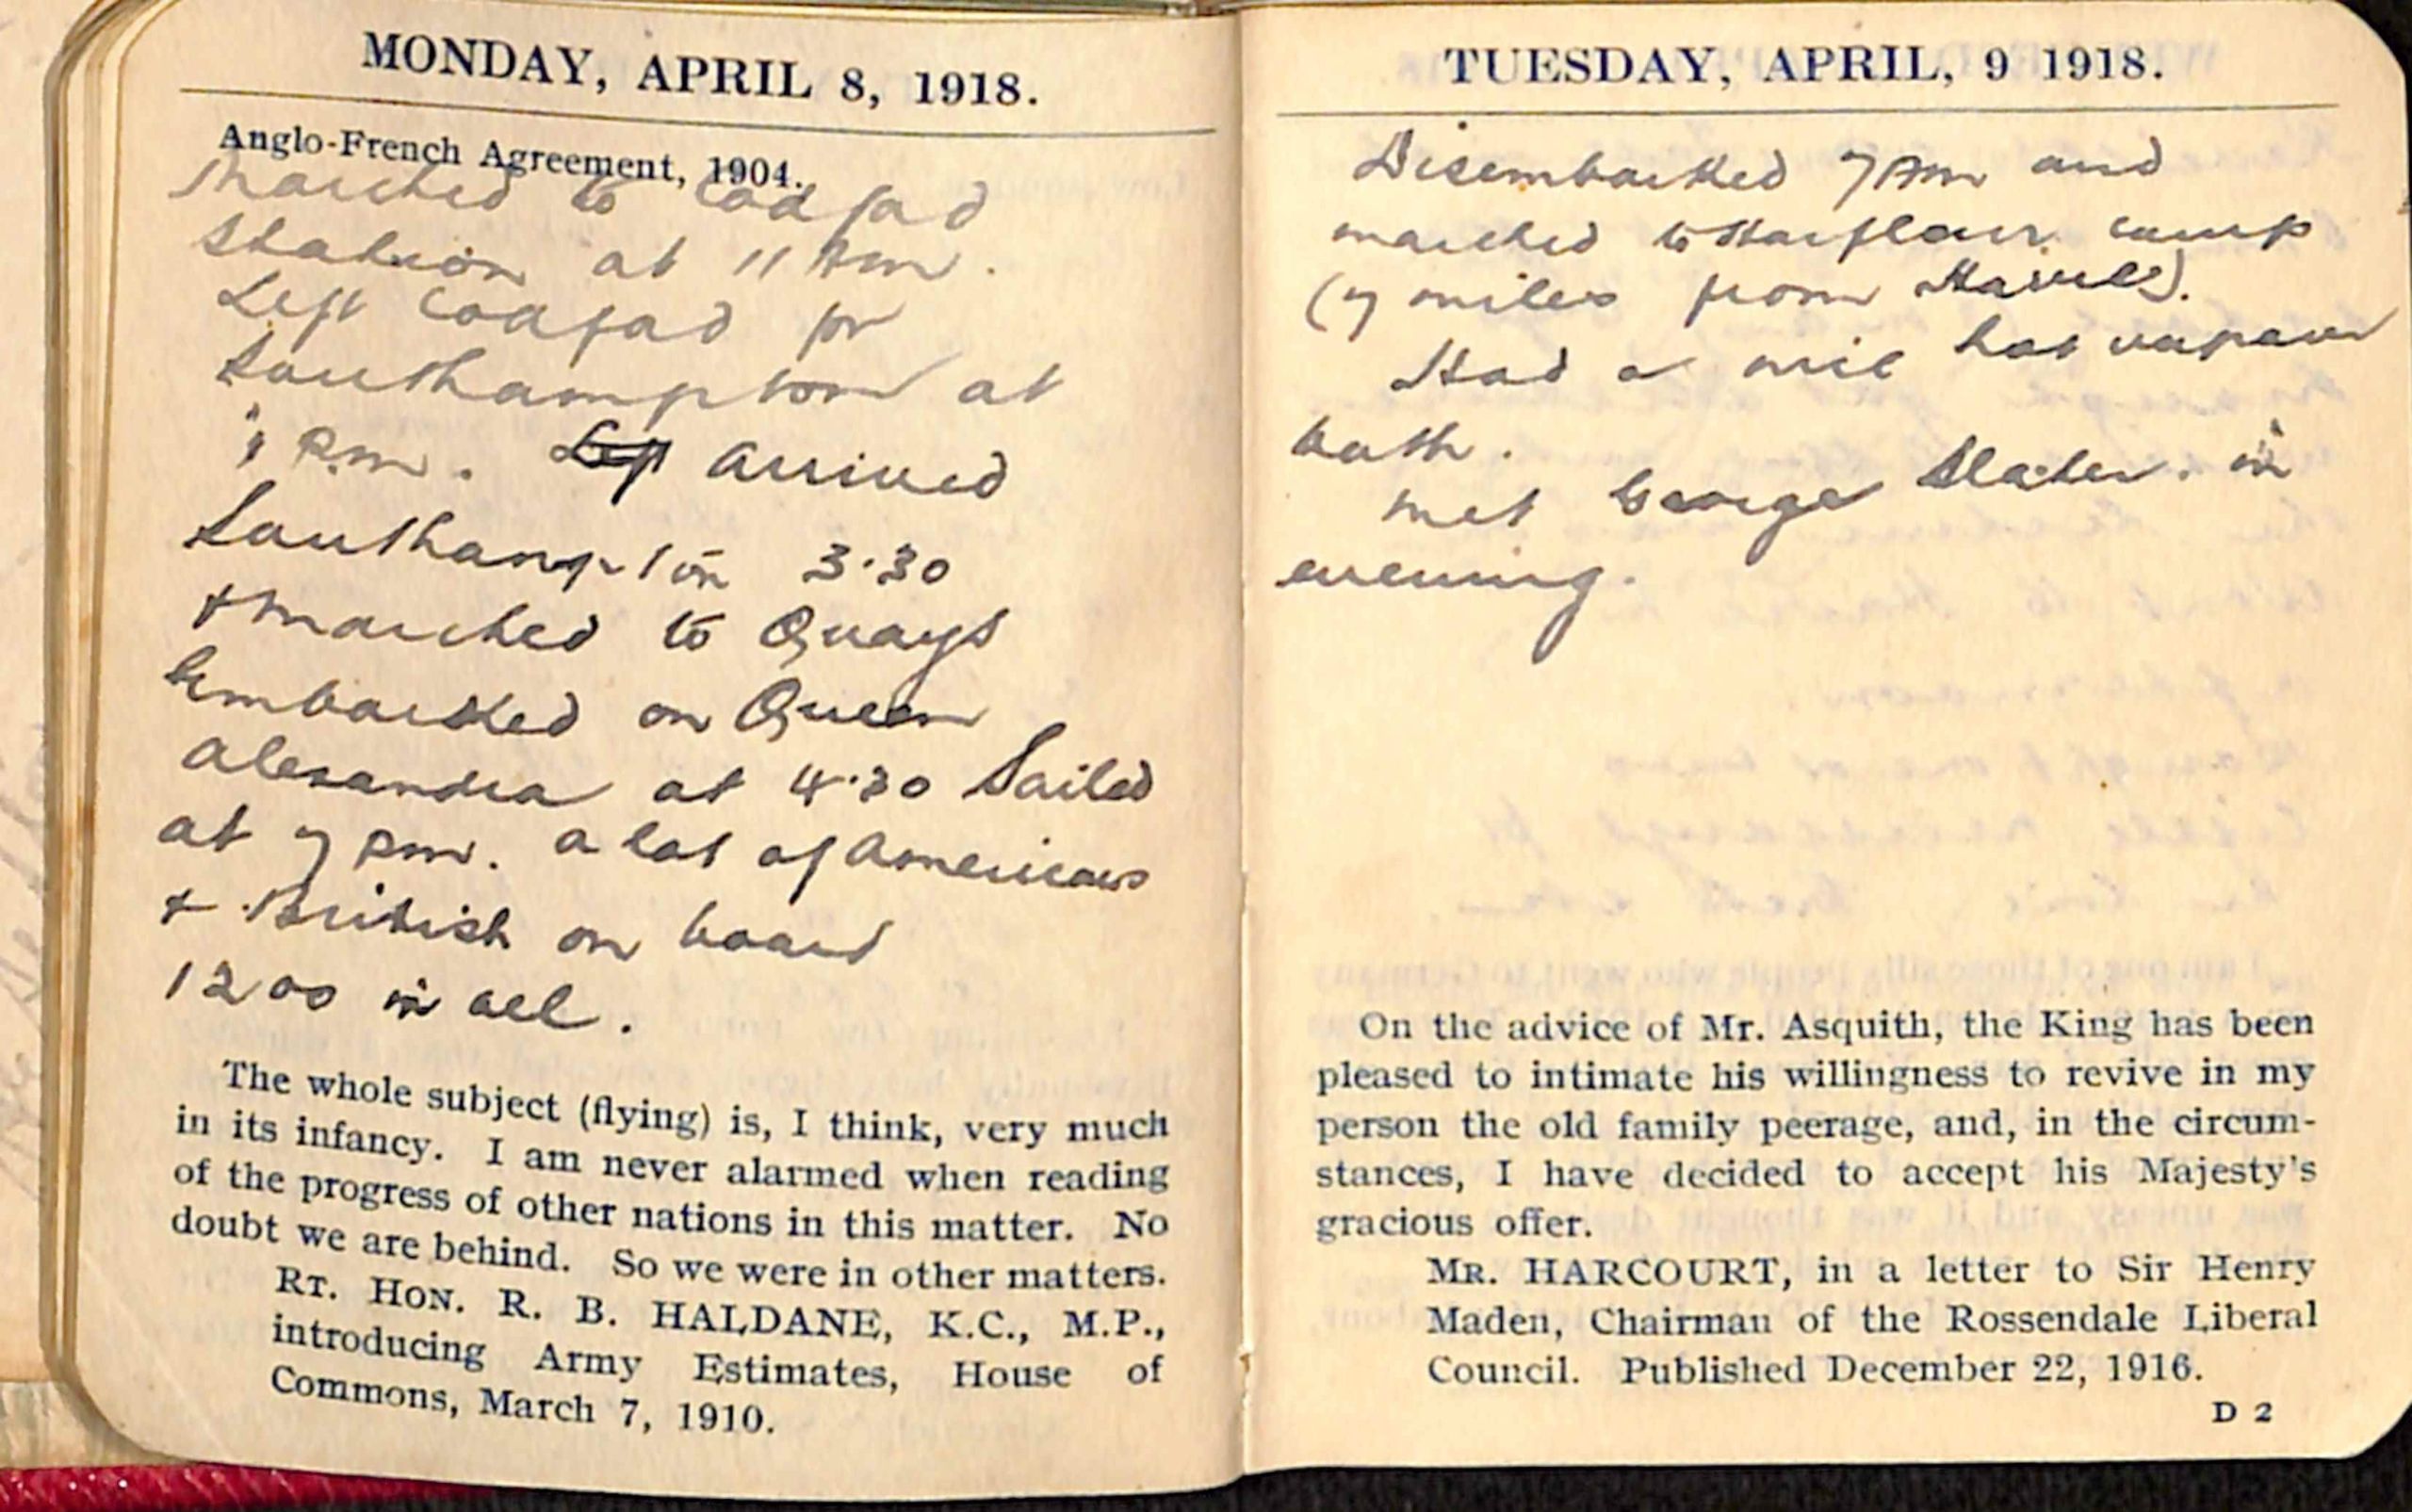 MONDAY, APRIL 8, 1918.
Anglo-French Agreement, 1904.
Marched to Codford
Station at 11 Am.
Left Codford for
Southampton at
1 P.m. Left arrived
Southampton 3.30
+ marched to Quays
Embarked on Queen
Alexandra at 4.30 Sailed
at 7 pm. a lot of Americans
+ British on board
1200 in all.
The whole subject (flying) is, I think, very much
in its infancy. I am never alarmed when reading
of the progress of other nations in this matter. No
doubt we are behind. So we were in other matters.
RT. HON. R. B. HALDANE, K.C., M.P.,
introducing Army Estimates, House of
Commons, March 7, 1910.
TUESDAY, APRIL, 9 1918.
Disembarked 7 Am and
marched to Harfleur camp
(7 miles from Havre).
Had a nice hot vapour
bath.
met George Slater. in
evening.
On the advice of Mr. Asquith, the King has been
pleased to intimate his willingness to revive in my
person the old family peerage, and, in the circum-
stances, I have decided to accept his Majesty's
gracious offer.
MR. HARCOURT, in a letter to Sir Henry
Maden, Chairman of the Rossendale Liberal
Council. Published December 22, 1916.
D 2